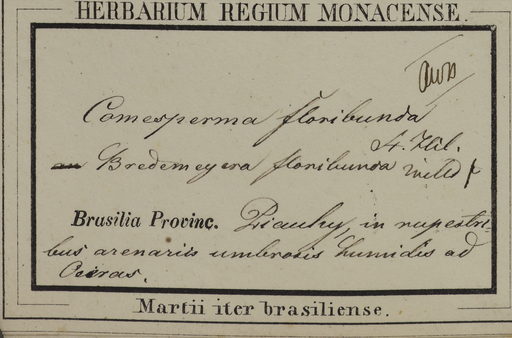 HERBARIUM REGIUM MONACENSE.
Comesperma floribunda
St. Hil.
an Bredemeyera floribunda Willd
Brasilia Provinc. Piauhy, in rupestri-
bus arenariis umbrosis humidis ad
Oeiras.
Martii iter brasiliense.